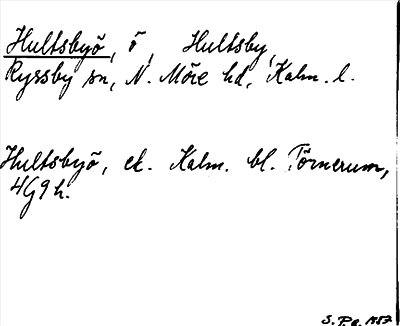 Hultsbyö, ö, Hultsby,
Ryssby sn, N. Möre hd, Kalm. l.
Hultsbyö, ek. Kalm. bl. Törnerum,
4G9h.
S. Pe. 1957